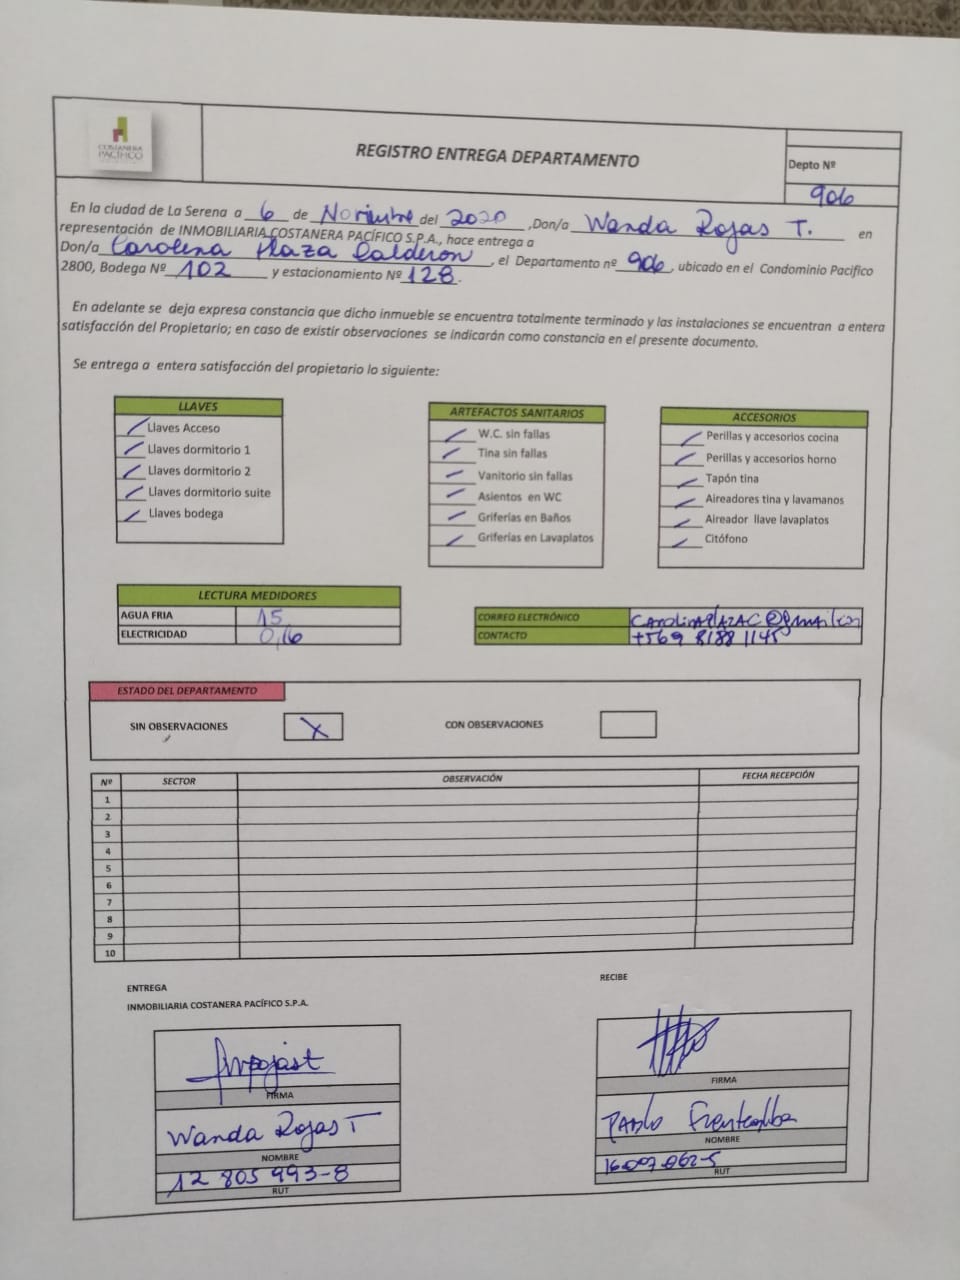 COSTANERA
PACÍFICO
REGISTRO ENTREGA DEPARTAMENTO
Depto Nº
906
En la ciudad de La Serena a 6 de Noviembre del 2020, Don/a Wanda Rojas T. en
representación de INMOBILIARIA COSTANERA PACÍFICO S.P.A., hace entrega a
Don/a Carolina Plaza Calderon, el Departamento nº 906, ubicado en el Condominio Pacifico
2800, Bodega Nº 102 y estacionamiento Nº 128.
En adelante se deja expresa constancia que dicho inmueble se encuentra totalmente terminado y las instalaciones se encuentran a entera
satisfacción del Propietario; en caso de existir observaciones se indicarán como constancia en el presente documento.
Se entrega a entera satisfacción del propietario lo siguiente:
LLAVES
Llaves Acceso
Llaves dormitorio 1
Llaves dormitorio 2
Llaves dormitorio suite
Llaves bodega
ARTEFACTOS SANITARIOS
W.C. sin fallas
Tina sin fallas
Vanitorio sin fallas
Asientos en WC
Griferías en Baños
Griferías en Lavaplatos
ACCESORIOS
Perillas y accesorios cocina
Perillas y accesorios horno
Tapón tina
Aireadores tina y lavamanos
Aireador llave lavaplatos
Citófono
LECTURA MEDIDORES
AGUA FRIA 15
ELECTRICIDAD 0,16
CORREO ELECTRÓNICO CAROlinAPlAZAC@gmail.com
CONTACTO +569 8188 1145
ESTADO DEL DEPARTAMENTO
SIN OBSERVACIONES X CON OBSERVACIONES
Nº SECTOR OBSERVACIÓN FECHA RECEPCIÓN
1
2
3
4
5
6
7
8
9
10
ENTREGA
INMOBILIARIA COSTANERA PACÍFICO S.P.A.
FIRMA
Wanda Rojas T
NOMBRE
12 805 993-8
RUT
RECIBE
FIRMA
PABlo Fuentealba
NOMBRE
16007062-5
RUT